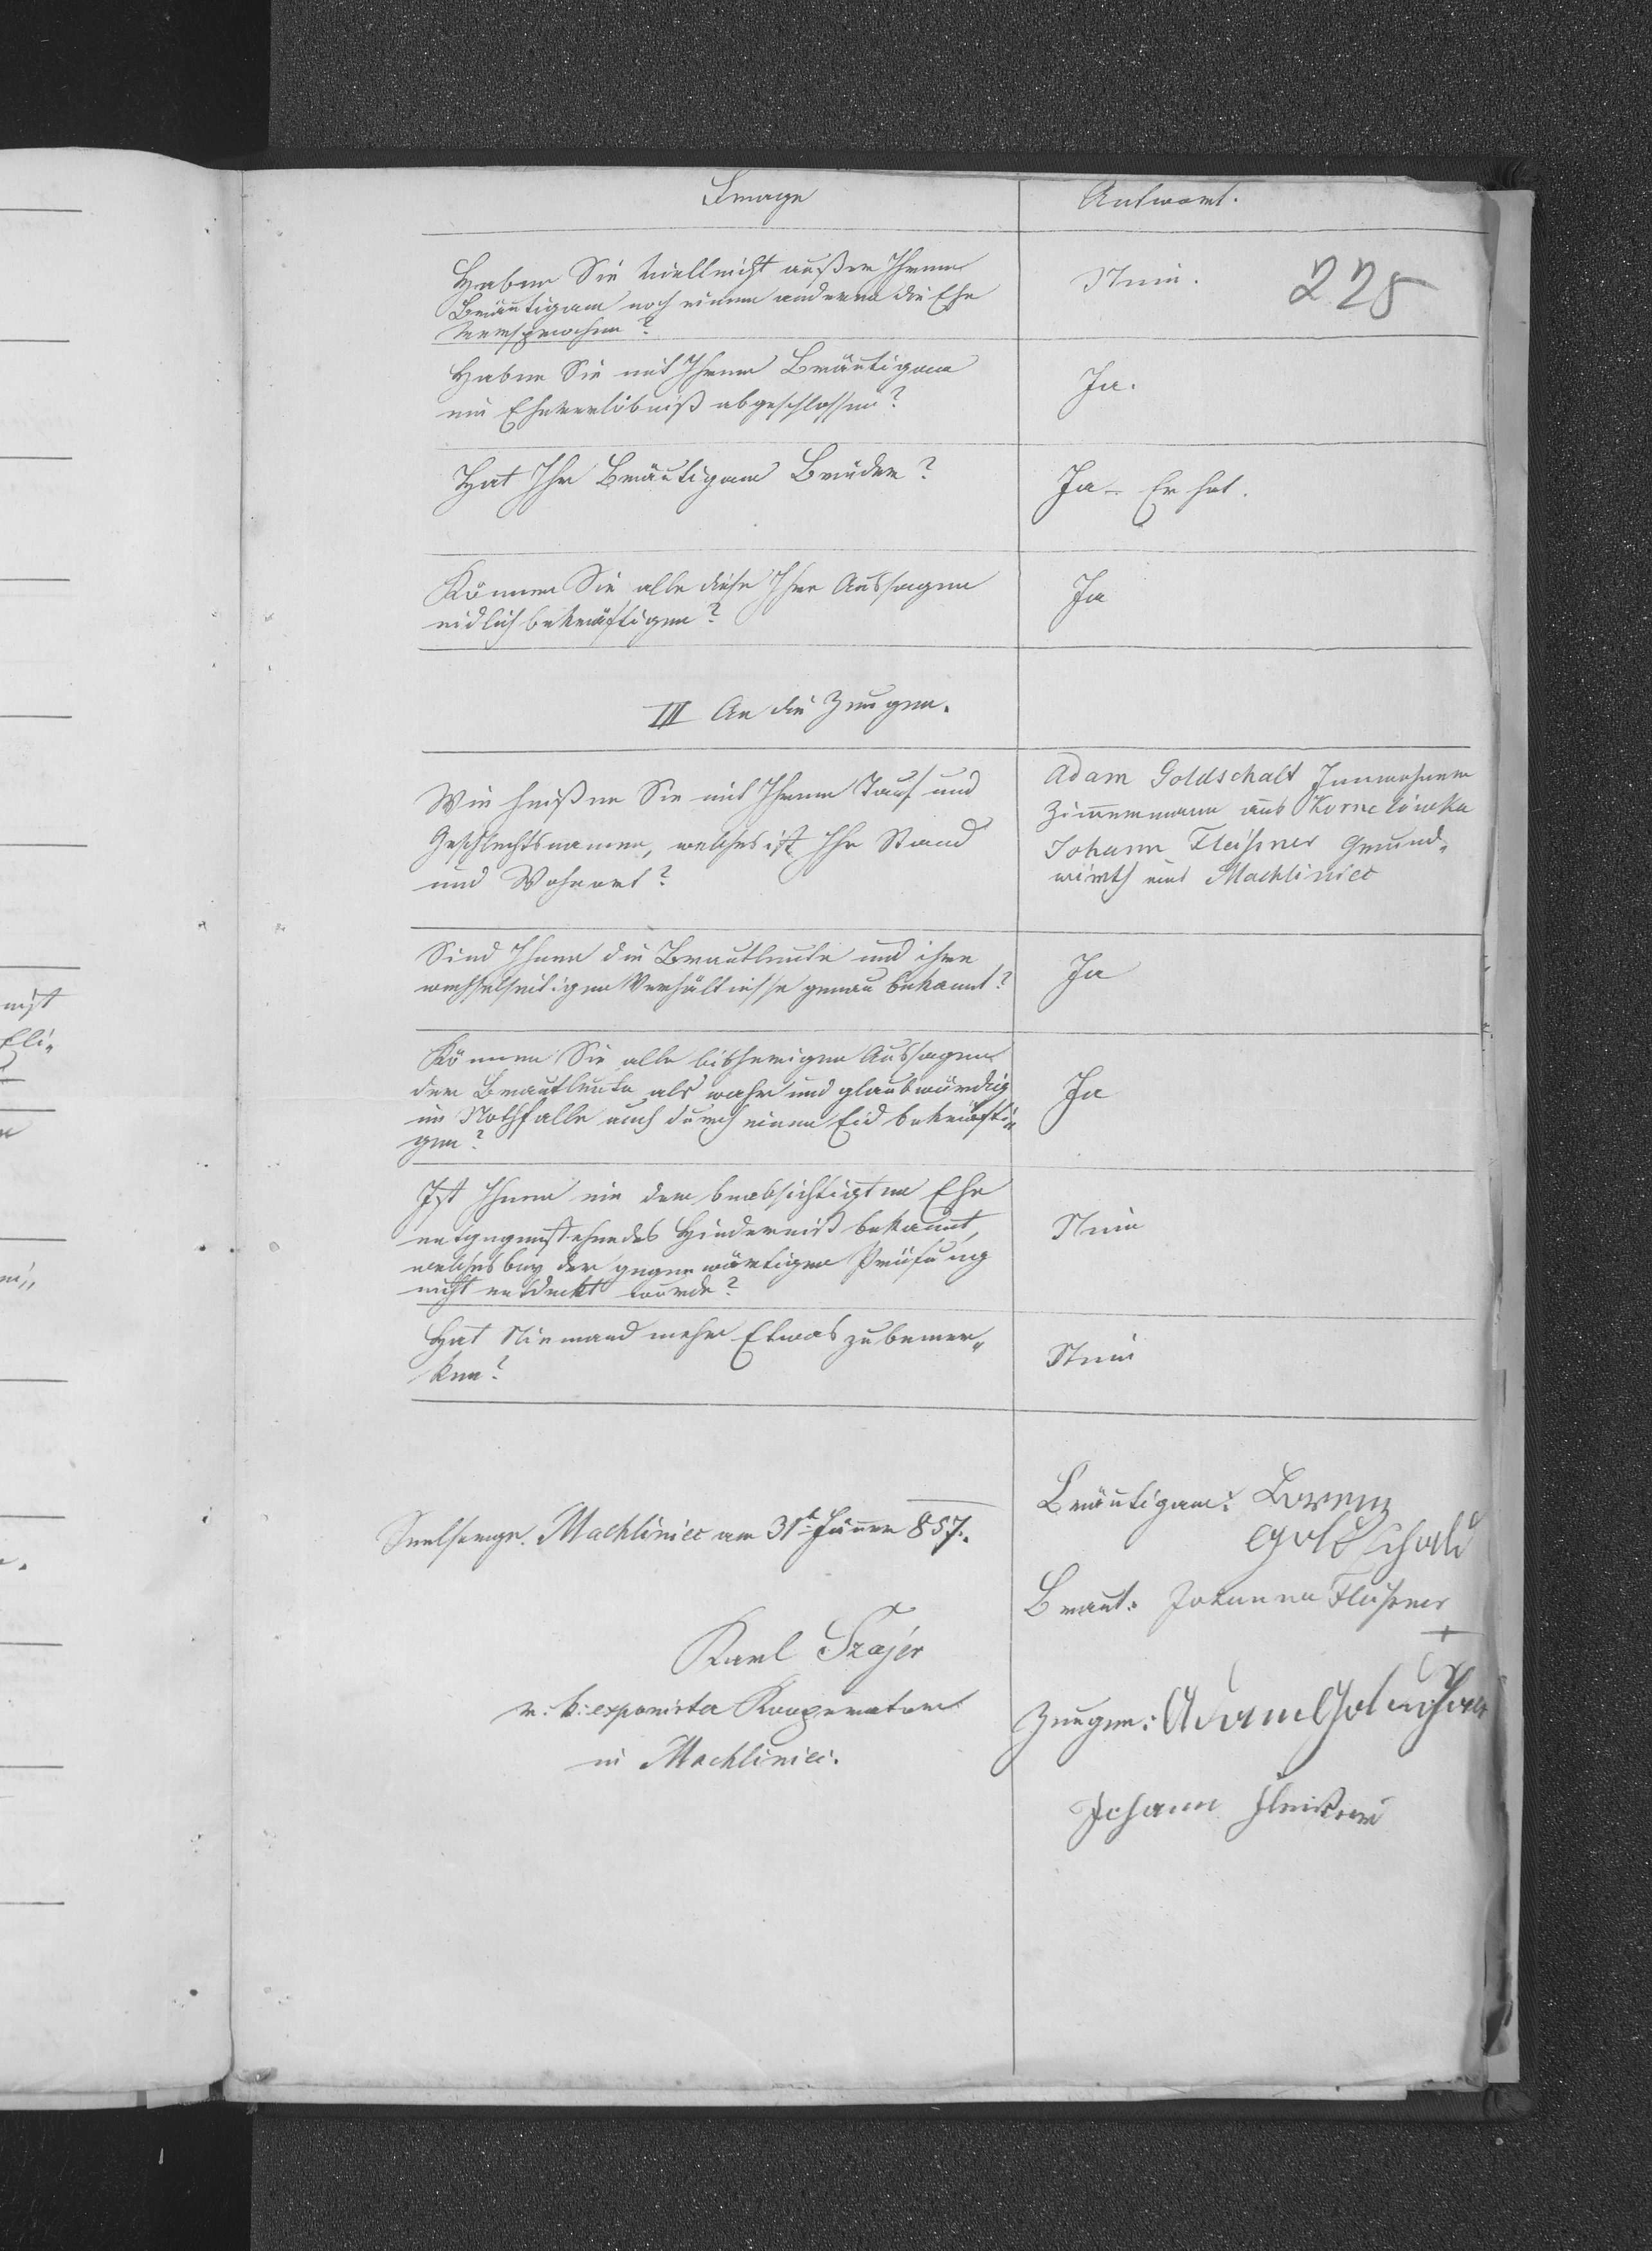 Frage
Antwort.
Haben Sie vielleicht außer Ihrem
Bräutigam noch einem anderen die Ehe
versprochen?
Nein.
225
Haben Sie mit Ihrem Bräutigam
ein Eheverlöbniß abgeschlossen?
Ja.
Hat Ihr Bräutigam Brüder?
Ja - Er hat.
Können Sie alle diese Ihre Aussagen
eidlich bekräftigen?
Ja
III An die Zeugen.
Wie heißen Sie mit Ihrem Tauf und
Geschlechtsnamen, welches ist Ihr Stand
und Wohnort?
Adam Goldschalt Innwohner
Zimmermann aus Kornelówka
Johann Fleißner Grund„
wirth aus Machliniec
Sind Ihnen die Brautleute und ihre
wechselseitigen Verhältnisse genau bekannt?
Ja
Können Sie alle bisherigen Aussagen
der Brautleute als wahr und glaubwürdig
im Nothfalle auch durch einen Eid bekräfti„
gen?
Ja
Ist Ihnen ein dem beabsichtigten Ehe
entgegenstehendes Hinderniß bekannt,
welches bey der gegenwärtigen Prüfung
nicht entdeckt wurde?
Nein
Hat Niemand mehr Etwas zu bemer„
ken?
Nein
Seelsorge. Machliniec am 31t Jänner 857.
Bräutigam: Lorenz
Goldschald
Braut: Johanna Fleißner
+
Karl Szajer
r. k. exponirter Kooperator
in Machliniec.
Zeugen: Adam
Johann Fleißner
nicht